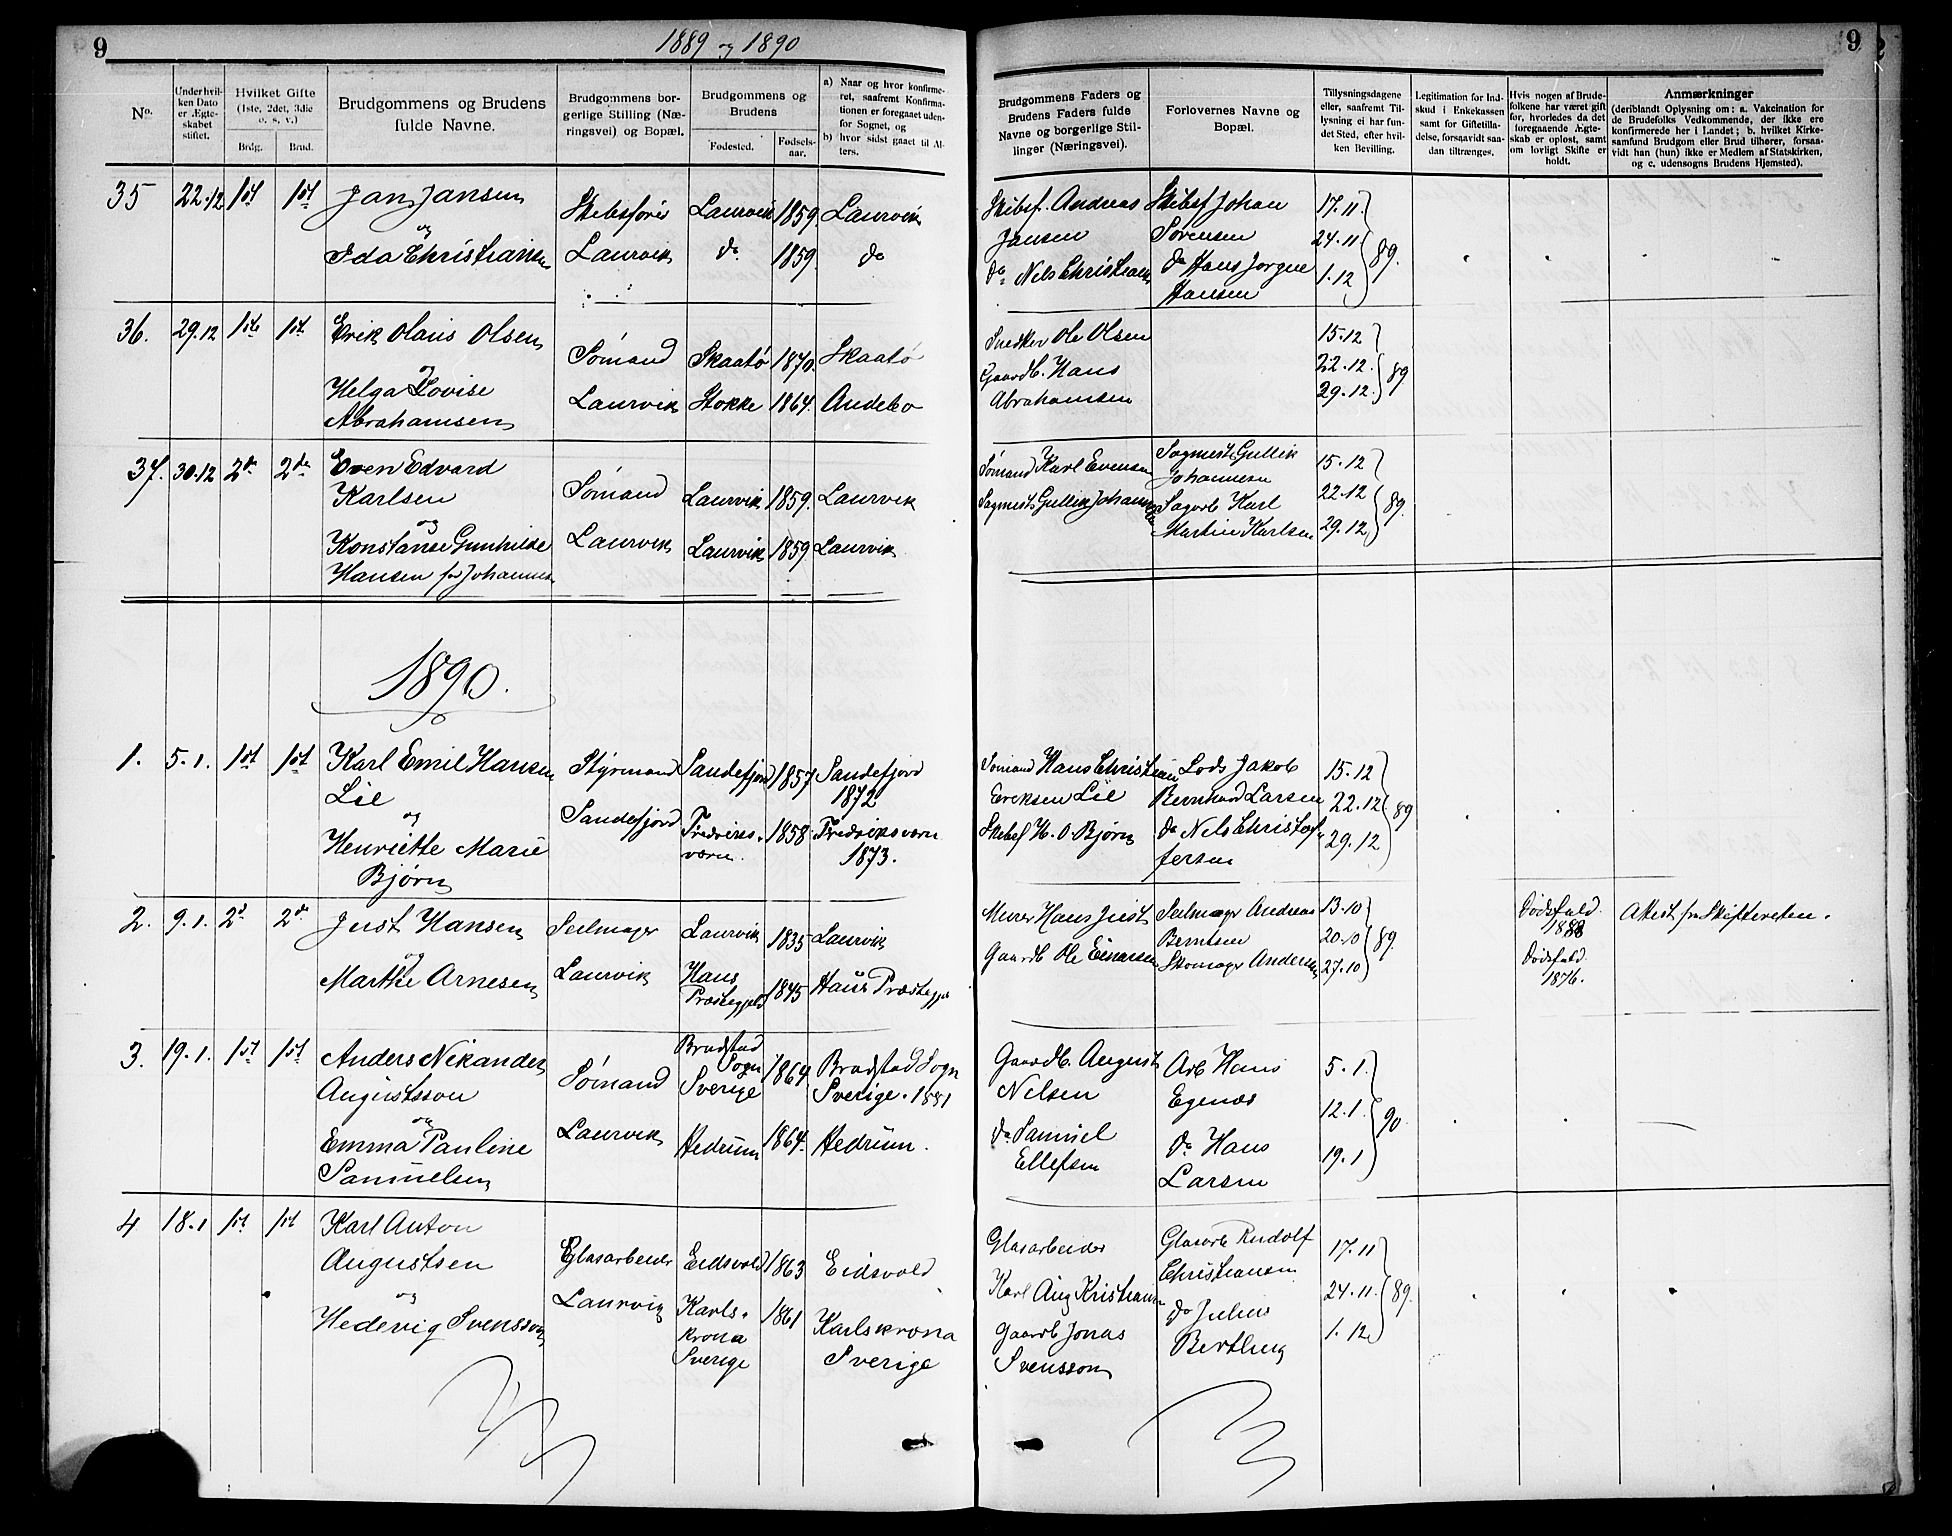 9
1889 og 1890
9
No.
Under hvilken Dato er Ægteskabet stiftet.
Hvilket Gifte (1ste, 2det, 3die o. s. v.)
Brdg.
Brud.
Brudgommens og Brudens fulde Navne.
Brudgommens borgerlige Stilling (Næringsvei) og Bopæl.
Brudgommens og Brudens
Fødested.
Fødselsaar.
a) Naar og hvor konfirmeret, saafremt Konfirmationen er foregaaet udenfor Sognet, og
b) hvor sidst gaaet til Alters.
Brudgommens Faders og Brudens Faders fulde Navne og borgerlige Stillinger (Næringsvei).
Forlovernes Navne og Bopæl.
Tillysningsdagene eller, saafremt Tillysning ei har fundet Sted, efter hvilken Bevilling.
Legitimation for Indskud i Enkekassen samt for Giftetilladelse, forsaavidt saadan tiltrænges.
Hvis nogen af Brudefolkene har været gift før, hvorledes da det foregaaende Ægteskab er opløst, samt om lovligt Skifte er holdt.
Anmærkninger
(deriblandt Oplysning om: a. Vakcination for de Brudefolks Vedkommende, der ikke ere konfirmerede her i Landet; b. hvilket Kirkesamfund Brudgom eller Brud tilhører, forsaavidt han (hun) ikke er Medlem af Statskirken, og c. udensogns Brudens Hjemsted).
35 22.12 1st 1st Jan Jansen Skibsfører Laurvik 1859. Laurvik
og
Ida Christiansen Laurvik do 1859. do
Skibsf. Andreas Skibsf Johan 17.11.
Jansen Sørensen 24.11 89.
do. Nels Christians do Hans Jørgen 1.12
Hansen
36. 29.12 1ste 1st. Erik Olaus Olsen Sømand Skaatø 1870. Skaatø
og
Helga Lovise Laurvik Stokke 1864. Andebo
Abrahamsen
Snedker Ole Olsen 15.12
Gaardb. Hans 22.12. 89
Abrahamsen 29.12.
37. 30.12 2de 2de Even Edvard
Karlsen Sømand Laurvik 1859. Laurvik
og
Konstanse Gunhilde Laurvik Laurvik 1859 Laurvik
Hansen f. Johannes
Sømand Karl Evensen Sagmest. Gullik 15.12
Johannesen
Sagmest. Gullik Johannesen Sagarb Karl 22.12 89.
Martin Karlsen 29.12
1890.
1. 5.1. 1st 1st Karl Emil Hansen Styrmand Sandefjord 1857 Sandefjord
Lie 1872
og Sandefjord
Henriette Marie Fredriksværn. 1858 Fredriksværn
Bjørn 1873.
Sømand Hans Christian Lods Jakob 15.12
Eriksen Lie Bernhard Larsen 22.12 89
Skibsf H. O. Bjørn do Nels Christoffersen 29.12
2. 9.1. 2d 2de Just Hansen Seilmager Laurvik 1835 Laurvik
og
Marthe Arnesen Laurvik Haus Præstegjeld 1845 Haus Præstegje
Murer Hans Just Seilmager Andreas 13.10 Dødsfald. Attest fra Skifteretten.
Berntsen 20.10 89 1888
Gaardb Ole Einarsen Skomager Andersen 27.10 Dødsfald.
1876.
3. 19.1. 1st 1st Anders Nikander Bradstad
Sogn 1864 Bradstad Sogn
Augustsson Sømand Sverige Sverige. 1881
og
Emma Pauline Laurvik Hedrum 1864. Hedrum.
Samuelsen
Gaardb. August Arb Hans 5.1.
Nelsen Egenæs 12.1. 90
do Samuel do Hans
Ellefsen Larsen 19.1
4 18.1 1st 1st Karl Anton
Augustsen Glasarbeider Eidsvold 1863 Eidsvold
og
Hedevig Svensson Laurvik Karlskrona 1861 Karlskrona
Sverige Sverige
Glasarbeider Glasarb Rudolf 17.11
Christiansen
Karl Aug Kristiansen do Julius 24.11. 89.
Gaardb Jonas Berthung 1.12
Svensson